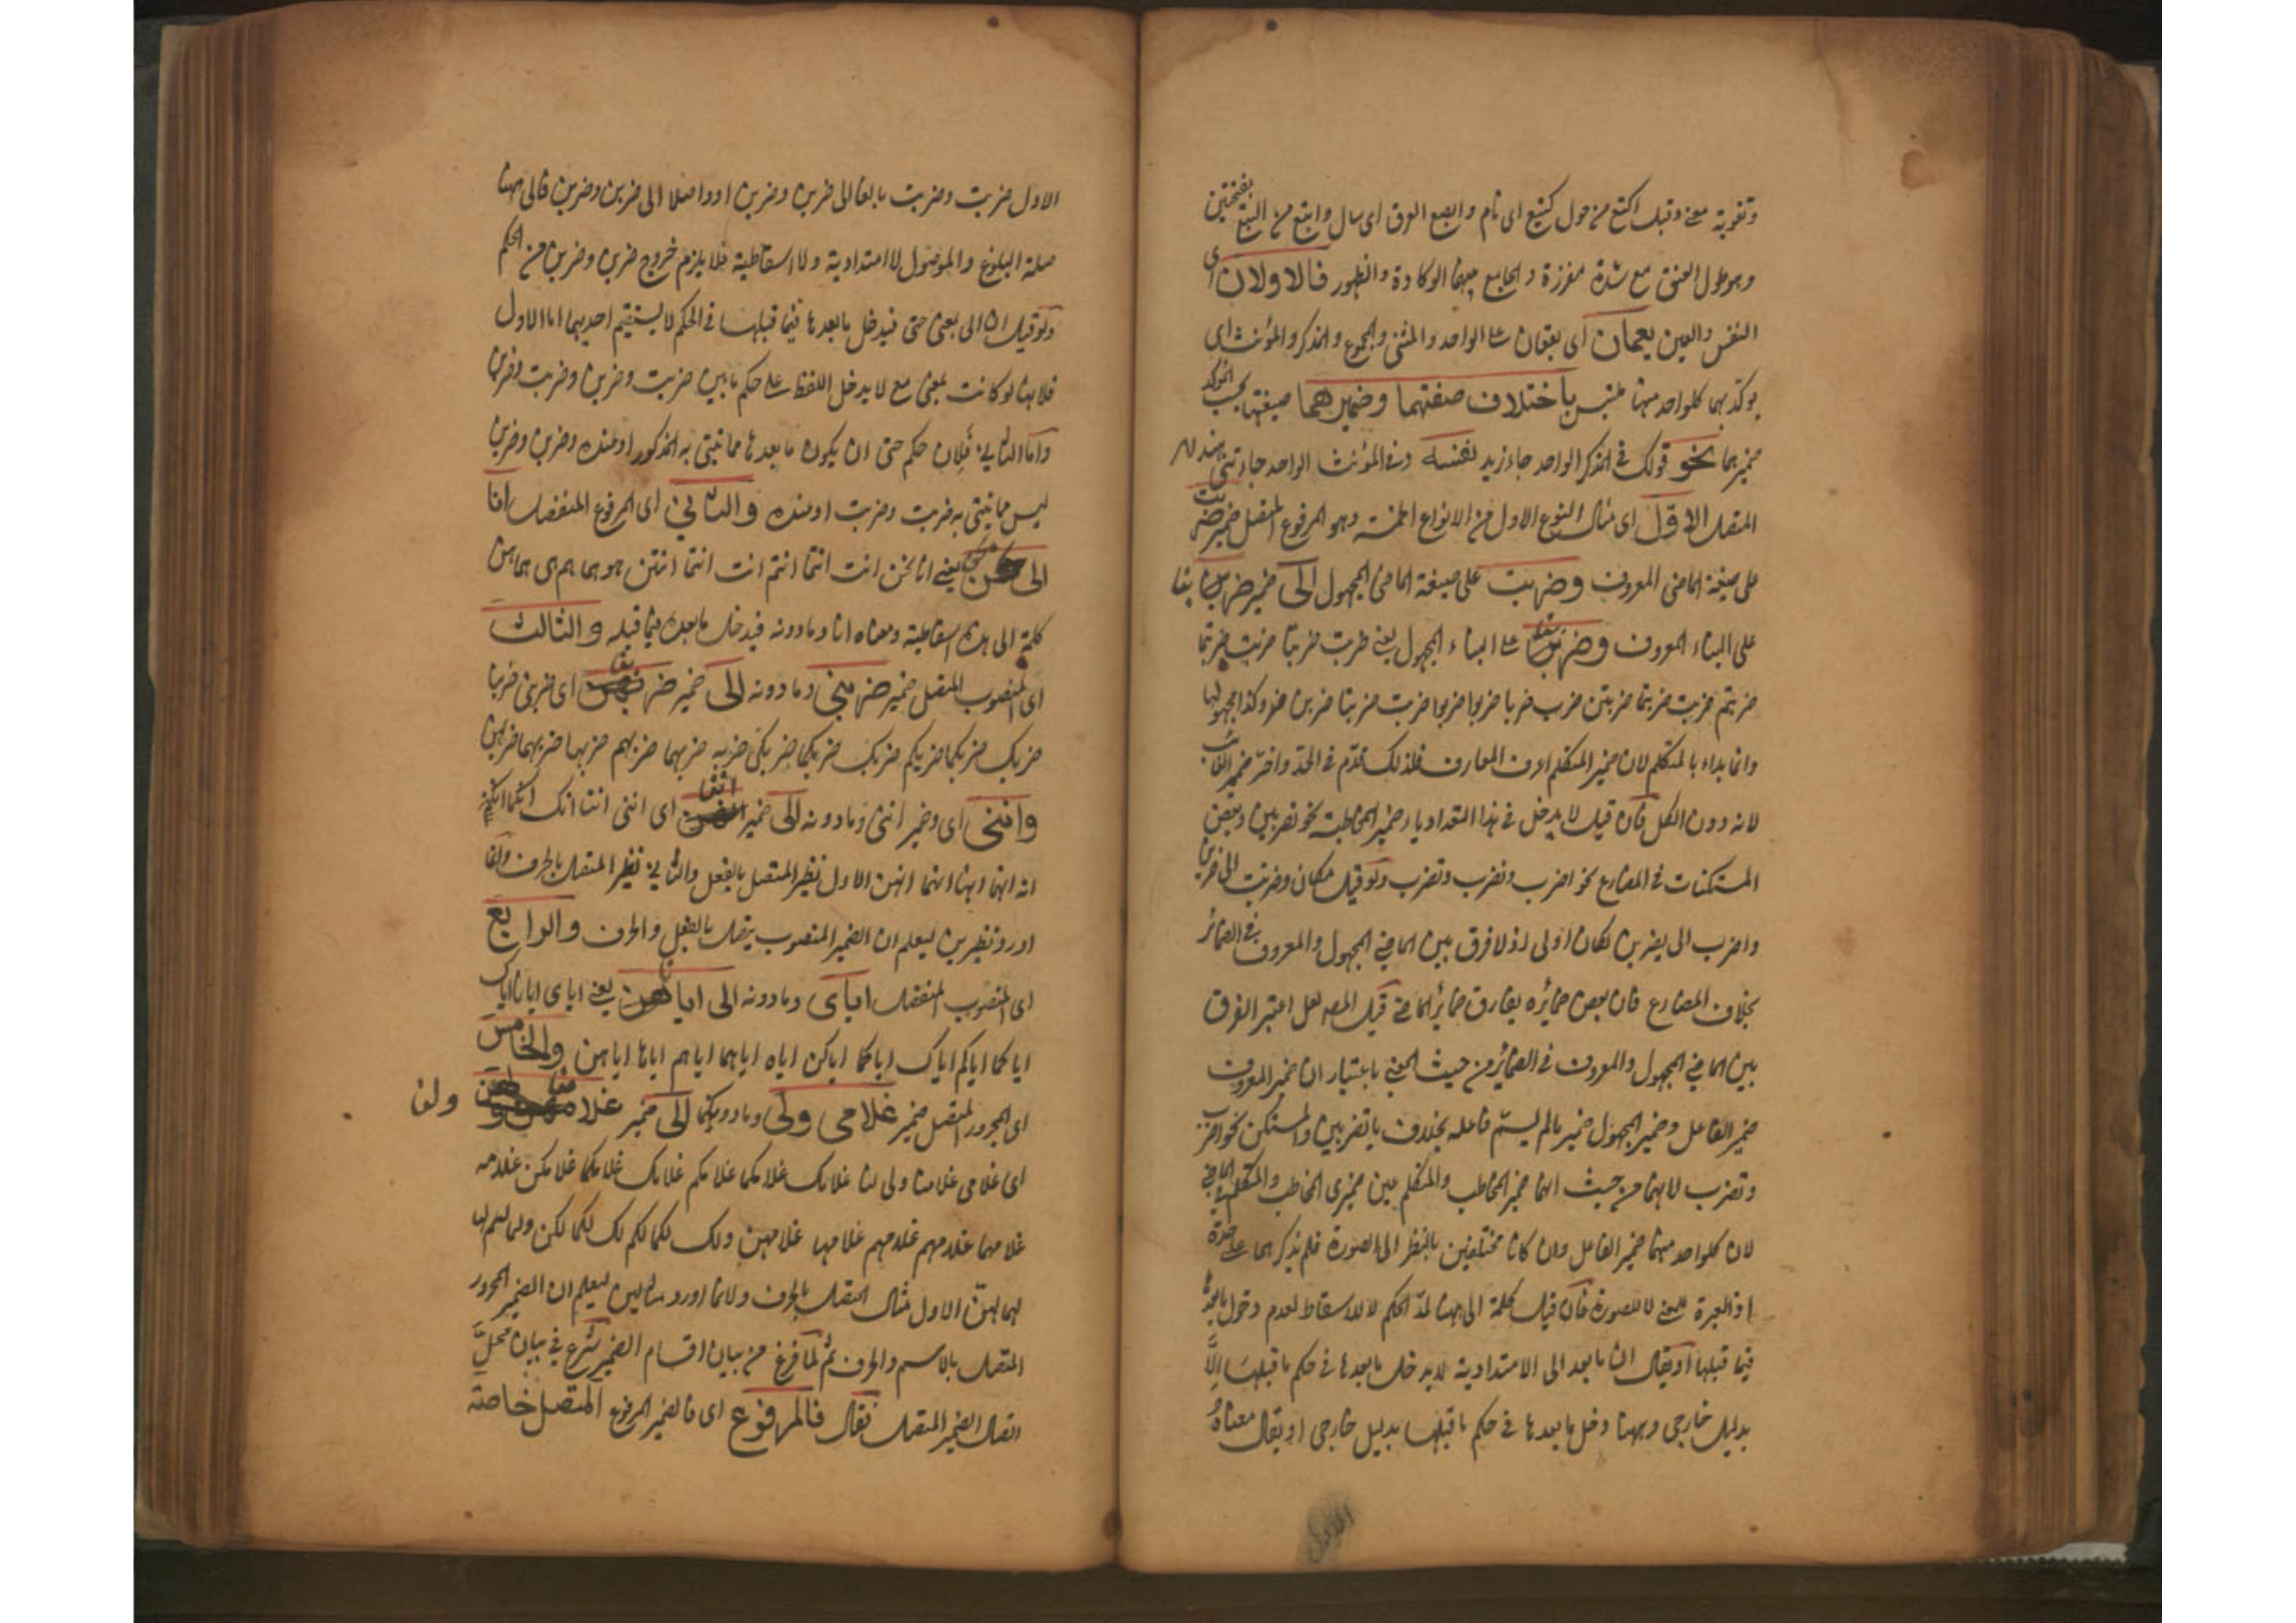 وتقويته معنى وقيل اكتع من حول كتيع اى تام وابصع من بصع العرق اى سال وابتع من البتع بفتحتين
وهو طول العنق مع شدة مغرزه والجامع بينهما الوكادة والظهور فالاولان اى
النفس والعين يعمان اى يقعان على الواحد والمثنى والمجموع والمذكر والمؤنث اى
يوكد بهما كلواحد منها باختلاف صيغتهما وضميرهما صيغتها بحسب المؤكد
ضميرهما نحو قولك فى المذكر الواحد جاء زيد نفسه وفى المؤنث الواحد جاءتنى هند
المتصل الاول اى مثال النوع الاول من الانواع الخمسة وهو المرفوع المتصل ضمير ضربت
على صيغة الماضى المعروف وضربت على صيغة الماضى المجهول الى ضمير ضربن بناء
على البناء المعروف وضربن على البناء المجهول يعنى ضربت ضربنا ضربت ضربتما
ضربتم ضربت ضربتما ضربتن ضرب ضربا ضربوا ضربت ضربتا ضربن وكذا مجهولها
وانما بداء بالمتكلم لان ضمير المتكلم اعرف المعارف فلذلك قدم فى الحد واخر ضمير الغائب
لانه دون الكل فان قيل لا يدخل فى هذا التعداد ياء ضمير المخاطبة نحو تضربين وبعض
المستكنات فى المضارع نحو اضرب ونضرب وتضرب ولو قيل مكان وضربت الى ضربن
واضرب الى يضربن لكان اولى اذ لا فرق بين الماضى المجهول والمعروف فى الضمائر
بخلاف المضارع فان بعض ضمائره يفارق ضمائر الماضى قيل المص لعل اعتبر الفرق
بين الماضى المجهول والمعروف فى الضمائر من حيث المعنى باعتبار ان ضمير المعروف
ضمير الفاعل وضمير المجهول ضمير ما لم يسم فاعله بخلاف ياء تضربين والمستكن نحو اضرب
وتضرب لانهما من حيث انهما ضمير المخاطب والمتكلم عين ضميرى المخاطب والمتكلم فى الماضى
لان كلواحد منهما ضمير الفاعل وان كانا مختلفين بالنظر الى الصورة فلم يذكرهما على حدة
اذ العبرة للمعنى لا للصورة فان قيل كلمة الى ههنا لمد الحكم لا للاسقاط لعدم دخول ما بعدها
فيما قبلها او يقال ان ما بعد الى الامتدادية لا يدخل ما بعدها فى حكم ما قبلها الا
بدليل خارجى وههنا دخل ما بعدها فى حكم ما قبلها بدليل خارجى او يقال معناه
الاول
الاول ضربت وضربت بالغا الى ضربن وضربن او واصلا الى ضربن وضربن فالى ههنا
صلة البلوغ والموصول لا امتدادية ولا اسقاطية فلا يلزم خروج ضربن وضربن من الحكم
ولو قيل ان الى بمعنى حتى فيدخل ما بعدها فيما قبلها فى الحكم لا يستقيم احديهما اما الاول
فلانها لو كانت بمعنى مع لا يدخل اللفظ على حكم ما بين ضربت وضربن وضربت وضربن
واما الثانى فلان حكم حتى ان يكون ما بعدها مما ينتهى به المذكور او عنده وضربن وضربن
ليس مما ينتهى به ضربت وضربت او عنده والثانى اى المرفوع المنفصل انا
الى هن يعنى انا نحن انت انتما انتم انت انتما انتن هو هما هم هى هما هن
كلمة الى هذه اسقاطية ومعناه انا وما دونه فيدخل ما بعده فيما قبله والثالث
اى المنصوب المتصل ضمير ضربنى وما دونه الى ضمير ضربهن اى ضربنى ضربنا
ضربك ضربكما ضربكم ضربك ضربكما ضربكن ضربه ضربهما ضربهم ضربها ضربهما ضربهن
واننى اى وضمير اننى وما دونه الى ضمير انهن اى اننى اننا انك انكما انكم
انه انهما انها انهما انهن الاول نظير المتصل بالفعل والثانى نظير المتصل بالحرف وانما
اورد نظيرين ليعلم ان الضمير المنصوب يتصل بالفعل والحرف والرابع
اى المنصوب المنفصل اياى وما دونه الى اياهن يعنى اياى ايانا اياك
اياكما اياكم اياك اياكما اياكن اياه اياهما اياهم اياها اياهن والخامس
اى المجرور المتصل ضمير غلامى ولى وما دونهما الى ضمير غلامهن ولهن
اى غلامى غلامنا ولى لنا غلامك غلامكما غلامكم غلامك غلامكما غلامكن غلامه
غلامهما غلامهم غلامها غلامهن ولك لكما لكم لك لكما لكن وله لهما لهم لها
لهما لهن الاول مثال المتصل بالحرف وانما اورد مثالين ليعلم ان الضمير المجرور
المتصل بالاسم والحرف ثم لما فرغ من بيان اقسام الضمير شرع فى بيان محل
اتصال الضمير المتصل فقال فالمرفوع اى فالضمير المرفوع المتصل خاصة